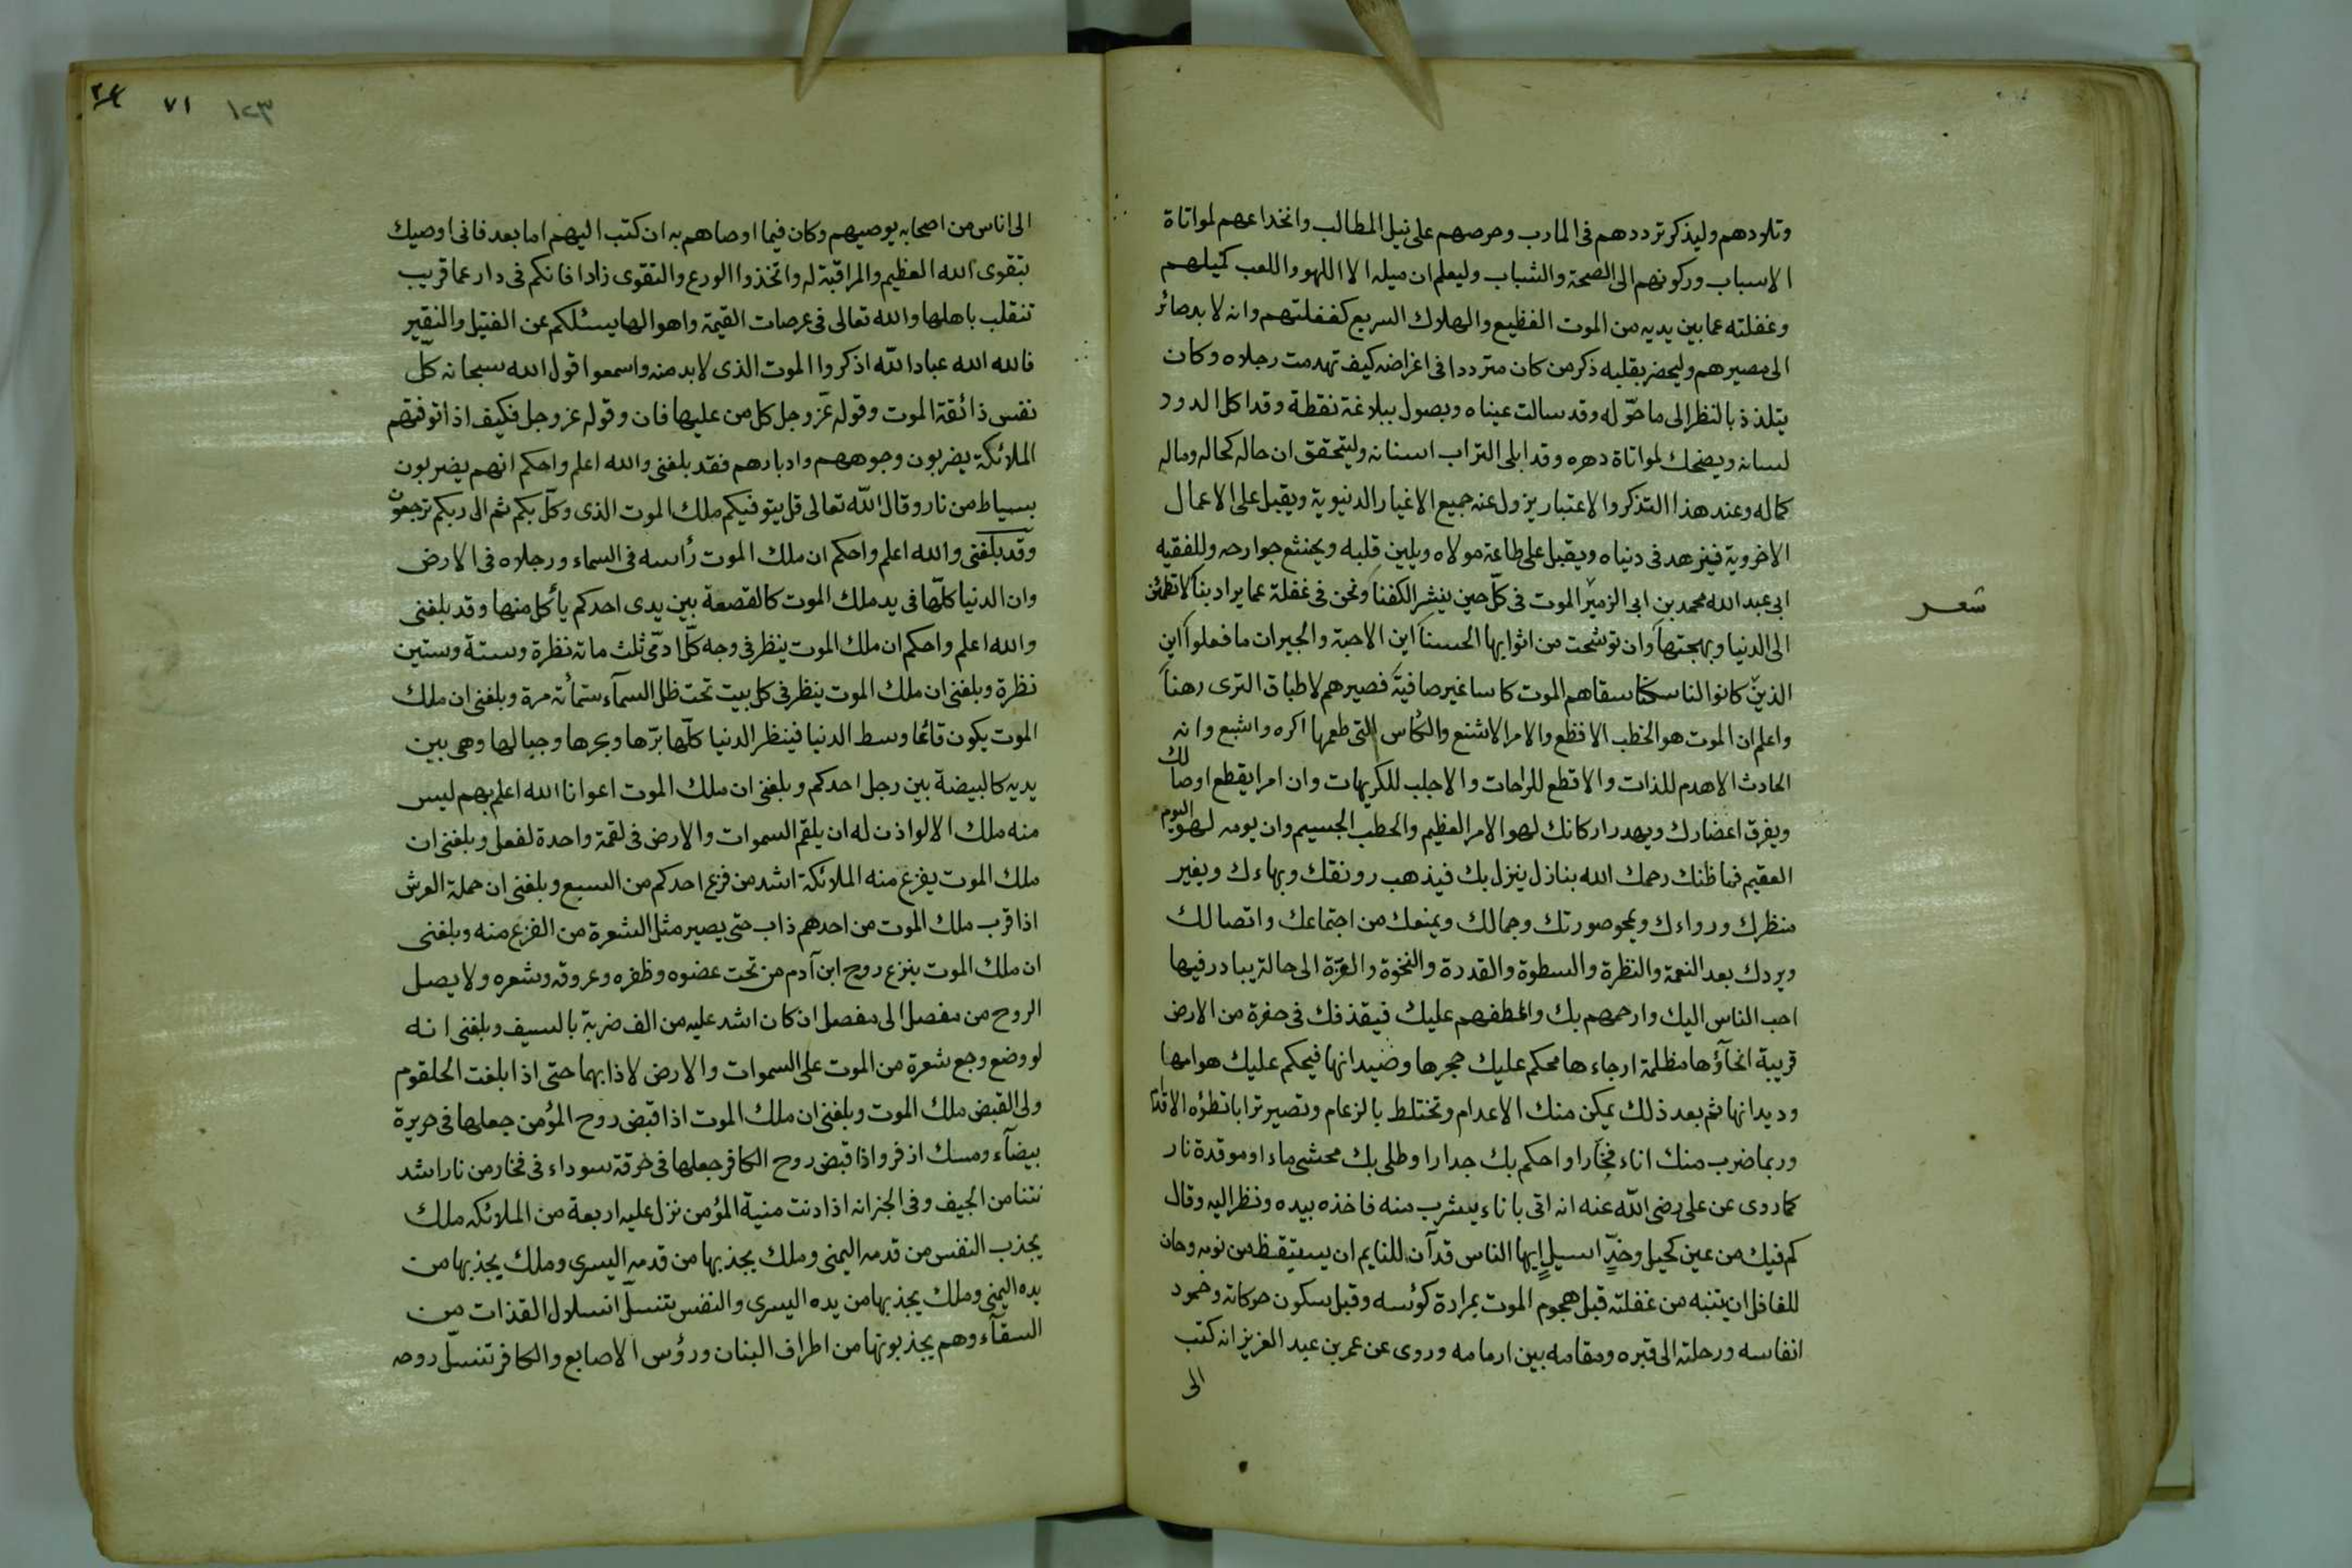 وتلودهم وليذكر ترددهم فى المارب وحرصهم على نيل المطالب وانخداعهم لمواتاة
الاسباب وركونهم الى الصحة والشباب وليعلم ان ميله الا اللهو واللعب كميلهم
وغفلته عما بين يديه من الموت الفظيع والهلاك السريع كغفلتهم وانه لا بد صائر
الى مصيرهم وليحضر بقلبه ذكر من كان مترددا فى اغراضه كيف تهدمت رجلاه وكان
يتلذذ بالنظر الى ما خوّله وقد سالت عيناه ويصول ببلاغة نقطة وقد اكل الدود
لسانه ويضحك لمواتاة دهره وقد ابلى التراب اسنانه وليتحقق ان حاله كحاله وماله
كماله وعند هذا التذكر والاعتبار يزول عنه جميع الاغيار الدنيوية ويقبل على الاعمال
الاخروية فيزهد فى دنياه ويقبل على طاعة مولاه ويلين قلبه ويخشع جوارحه وللفقيه
شعر
ابى عبد الله محمد بن ابى الزمير الموت فى كلّ حين ينشر الكفنا ونحن فى غفلة عما يراد بنا لا تطمئن
الى الدنيا وبهجتها وان توشحت من اثوابها الحسنا اين الاحبة والجيران ما فعلوا اين
الذين كانوا لنا سكنا سقاهم الموت كاسا غير صافية فصيرهم لاطباق الثرى رهنا
واعلم ان الموت هو الخطب الافظع والامر الاشنع والكأس التى طعمها اكره وابشع وانه
الحادث الاهدم للذات والاقطع للراحات والاجلب للكريهات وان امرا يقطع اوصالك
ويفرق اعضاءك ويهدر اركانك لهو الامر العظيم والخطب الجسيم وان يومه لهو اليوم
العقيم فما ظنك رحمك الله بنازل ينزل بك فيذهب رونقك وبهاءك ويغير
منظرك ورواءك ويمحو صورتك وجمالك ويمنعك من اجتماعك واتصالك
ويردك بعد النعمة والنظرة والسطوة والقدرة والنخوة والعزّة الى حالة يبادر فيها
احب الناس اليك وارحمهم بك واعطفهم عليك فيقذفك فى حفرة من الارض
قريبة انحآؤها مظلمة ارجاءها محكم عليك حجرها وصيدانها فيحكم عليك هوامها
وديدانها ثم بعد ذلك يمكن منك الاعدام وتختلط بالرغام وتصير ترابا تطؤه الاقدام
وربما ضرب منك اناء فخّارا واحكم بك جدارا وطلى بك محشى ماء او موقدة نار
كما روى عن على رضى الله عنه انه اتى باناء يشرب منه فاخذه بيده ونظر اليه وقال
كم فيك من عين كحيل وخدّ اسيل ايها الناس قد آن للنايم ان يستيقظ من نومه وحان
للغافل ان يتنبه من غفلته قبل هجوم الموت بمرارة كوئسه وقبل سكون حركاته وخمود
انفاسه ورحلته الى قبره ومقامه بين ارمامه وروى عن عمر بن عبد العزيز انه كتب
الى
٧١ ١٢٣
الى اناس من اصحابه يوصيهم وكان فيما اوصاهم به ان كتب اليهم اما بعد فانى اوصيك
بتقوى الله العظيم والمراقبة له واتخذوا الورع والتقوى زادا فانكم فى دار عما قريب
تنقلب باهلها والله تعالى فى عرصات القيمة واهوالها يسئلكم عن الفتيل والنقير
فالله الله عباد الله اذكروا الموت الذى لابد منه واسمعوا قول الله سبحانه كلّ
نفس ذائقة الموت وقوله عزّ وجل كل من عليها فان وقوله عز وجل فكيف اذا توفتهم
الملائكة يضربون وجوههم وادبارهم فقد بلغنى والله اعلم واحكم انهم يضربون
بسياط من نار وقال الله تعالى قل يتوفيكم ملك الموت الذى وكّل بكم ثم الى ربكم ترجعون
وقد بلغنى والله اعلم واحكم ان ملك الموت رأسه فى السماء ورجلاه فى الارض
وان الدنيا كلّها فى يد ملك الموت كالقصعة بين يدى احدكم يأكل منها وقد بلغنى
والله اعلم واحكم ان ملك الموت ينظر فى وجه كلّ ادمّى ثلث مائة نظرة وستة وستين
نظرة وبلغنى ان ملك الموت ينظر فى كل بيت تحت ظل السمآء ستمأئة مرة وبلغنى ان ملك
الموت يكون قائما وسط الدنيا فينظر الدنيا كلّها برّها وبحرها وجبالها وهى بين
يديه كالبيضة بين رجل احدكم وبلغنى ان ملك الموت اعوانا الله اعلم بهم ليس
منه ملك الا لو اذن له ان يلقم السموات والارض فى لقمة واحدة لفعل وبلغنى ان
ملك الموت يفزع منه الملائكة اشد من فزع احدكم من السبع وبلغنى ان حملة العرش
اذا قرب ملك الموت من احدهم ذاب حتى يصير مثل الشعرة من الفزع منه وبلغنى
ان ملك الموت ينزع روح ابن آدم من تحت عضوه وظفره وعروقه وشعره ولا يصل
الروح من مفصل الى مفصل ان كان اشد عليه من الف ضربة بالسيف وبلغنى انه
لو وضع وجع شعرة من الموت على السموات والارض لاذابهما حتى اذا بلغت الحلقوم
ولى القبض ملك الموت وبلغنى ان ملك الموت اذا قبض روح المؤمن جعلها فى حريرة
بيضآء ومسك اذفر واذا قبض روح الكافر جعلها فى خرقة سوداء فى فخار من نار اشد
نتنا من الجيف وفى الخبر انه اذا دنت منية المؤمن نزل عليه اربعة من الملائكه ملك
يجذب النفس من قدمه اليمنى وملك يجذبها من قدمه اليسرى وملك يجذبها من
يده اليمنى وملك يجذبها من يده اليسرى والنفس تنسلّ انسلال القذات من
السقآء وهم يجذبونها من اطراف البنان ورؤس الاصابع والكافر تنسلّ روحه